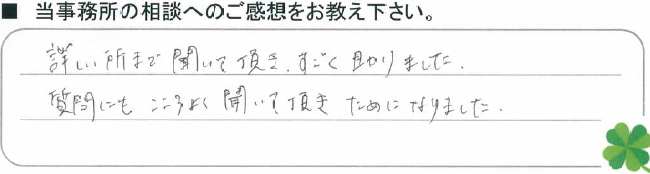 ■ 当事務所の相談へのご感想をお教え下さい。
詳しい所まで聞いて頂き、すごく助かりました。
質問にもこころよく聞いて頂きためになりました。